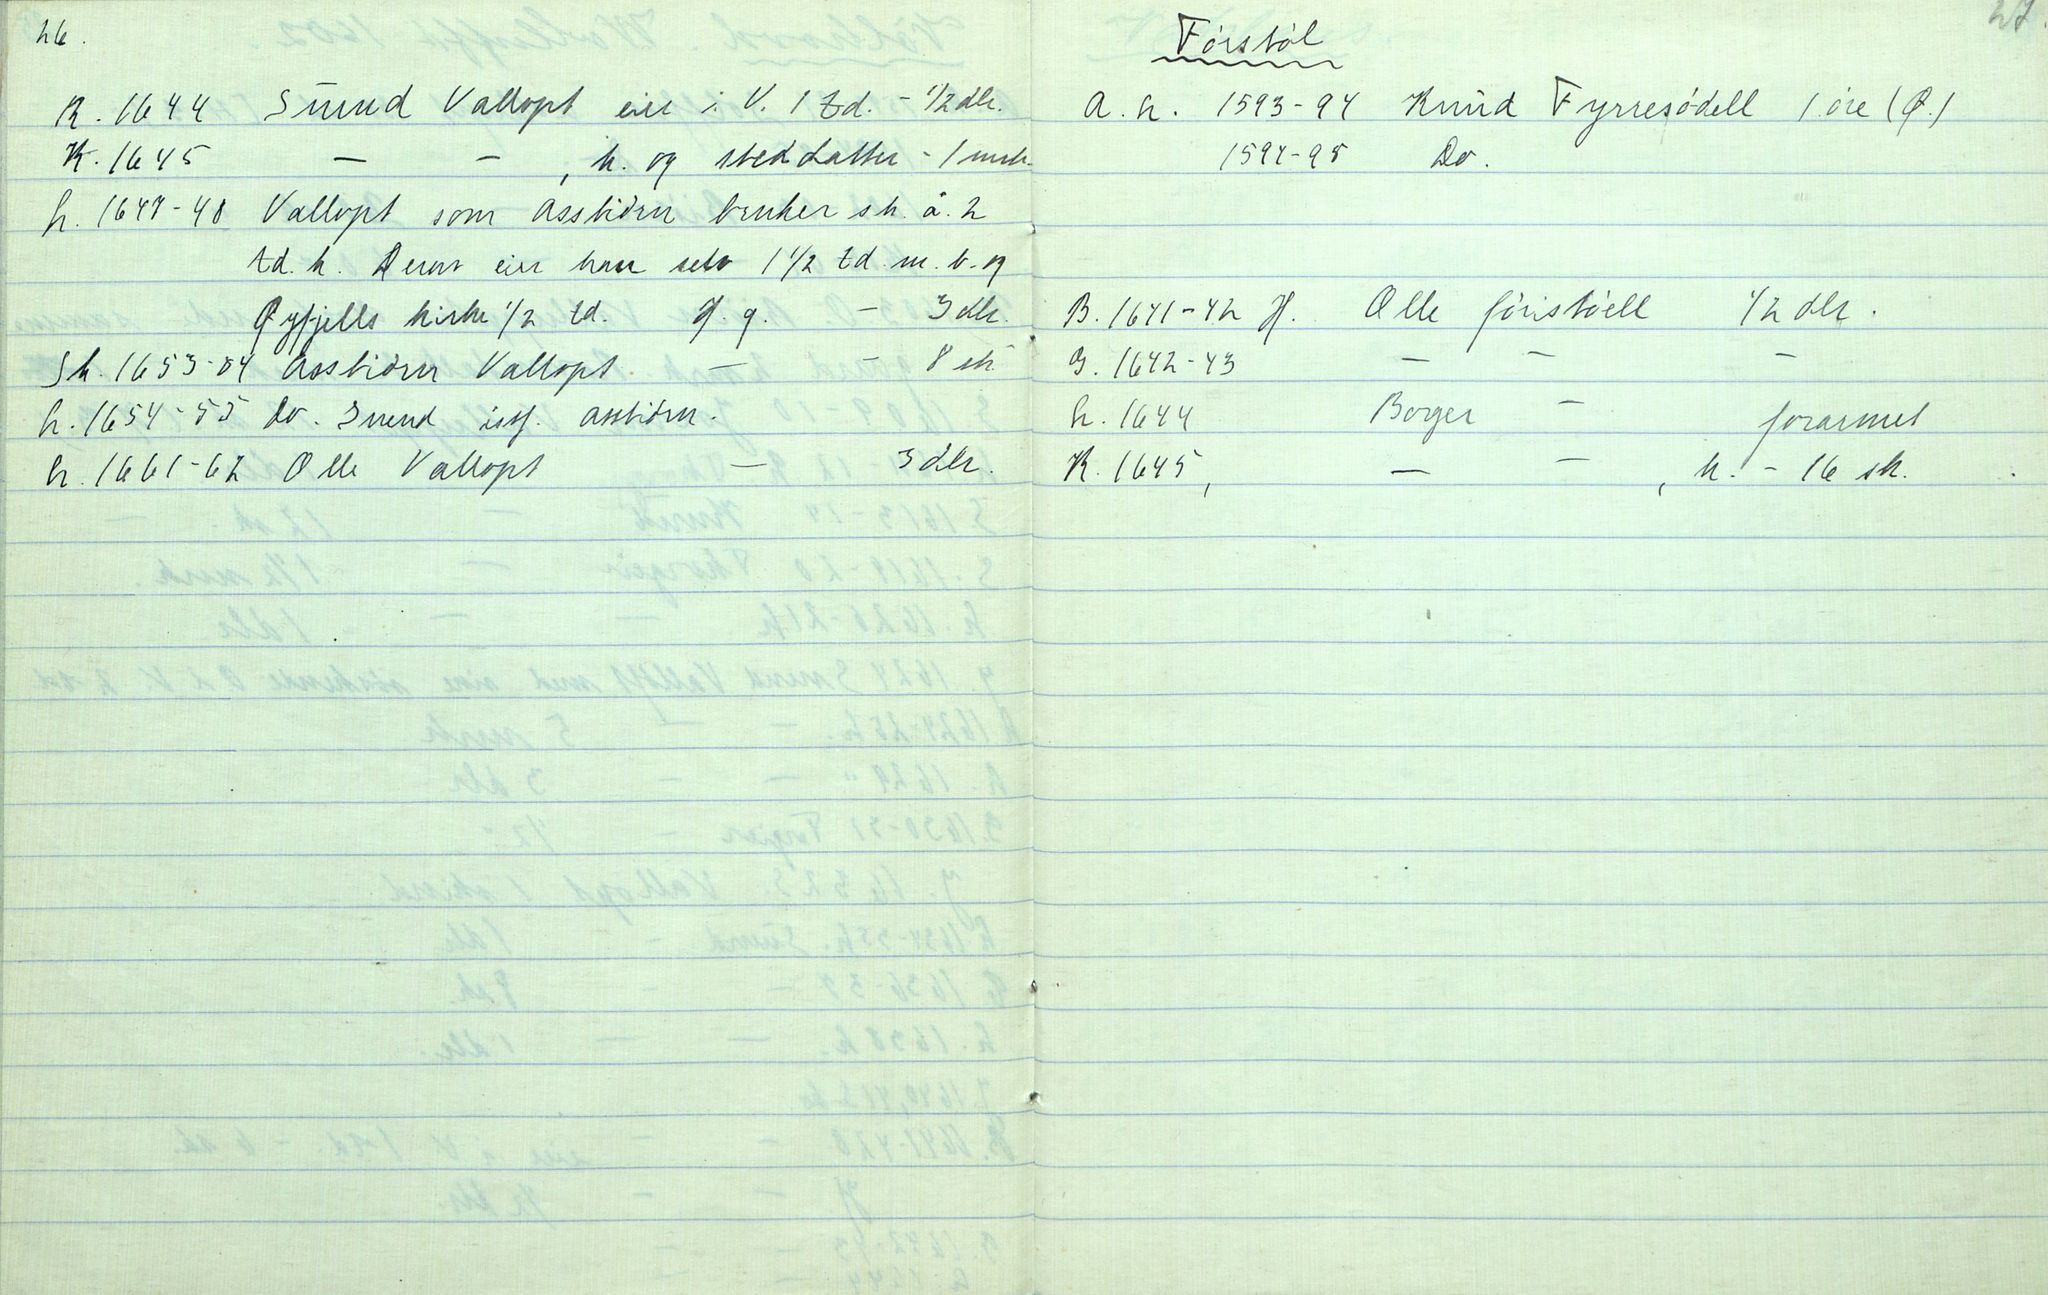 26.
R. 1644 Suund Vallopt eier i V. 1 td. - 1/2 dlr.
K. 1645 — — , k. og steddatter - 1 mrk.
L. 1647-48 Vallopt som Assbiörn bruker sk. å. 2
td. k. Derav eier han selv 1 1/2 td. m. b. og
Øyfjells kirke 1/2 td. H. g. — 3 dlr.
Sk. 1653-54 Assbiörn Vallopt — — 8 sk
L. 1654-55 Do. Suend istf. Assbiörn.
L. 1661-62 Olle Vallopt — 3 dlr.
27.
Förstöl
A. L. 1593-94 Knud Fyrresödell 1 öre (Ø.)
1594-95 Do.
B. 1641-42 H. Olle Föristöell 1/2 dlr.
G. 1642-43 — — —
L. 1644 Borger — forarmet
K. 1645, — — , k. - 16 sk.